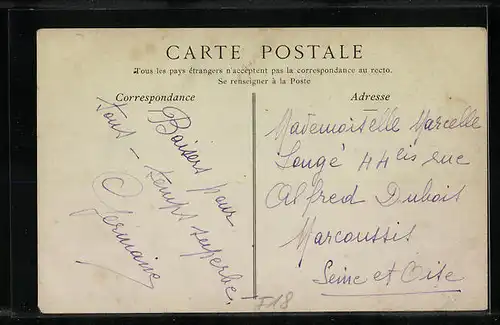 CARTE POSTALE
Tous les pays étrangers n'acceptent pas la correspondance au recto.
Se renseigner à la Poste
Correspondance
Adresse
Baisers pour
tous – temps superbe!
Germaine
Mademoiselle Marcelle
Longé 44 bis rue
Alfred Dubois
Marcoussis
Seine et Oise
F18